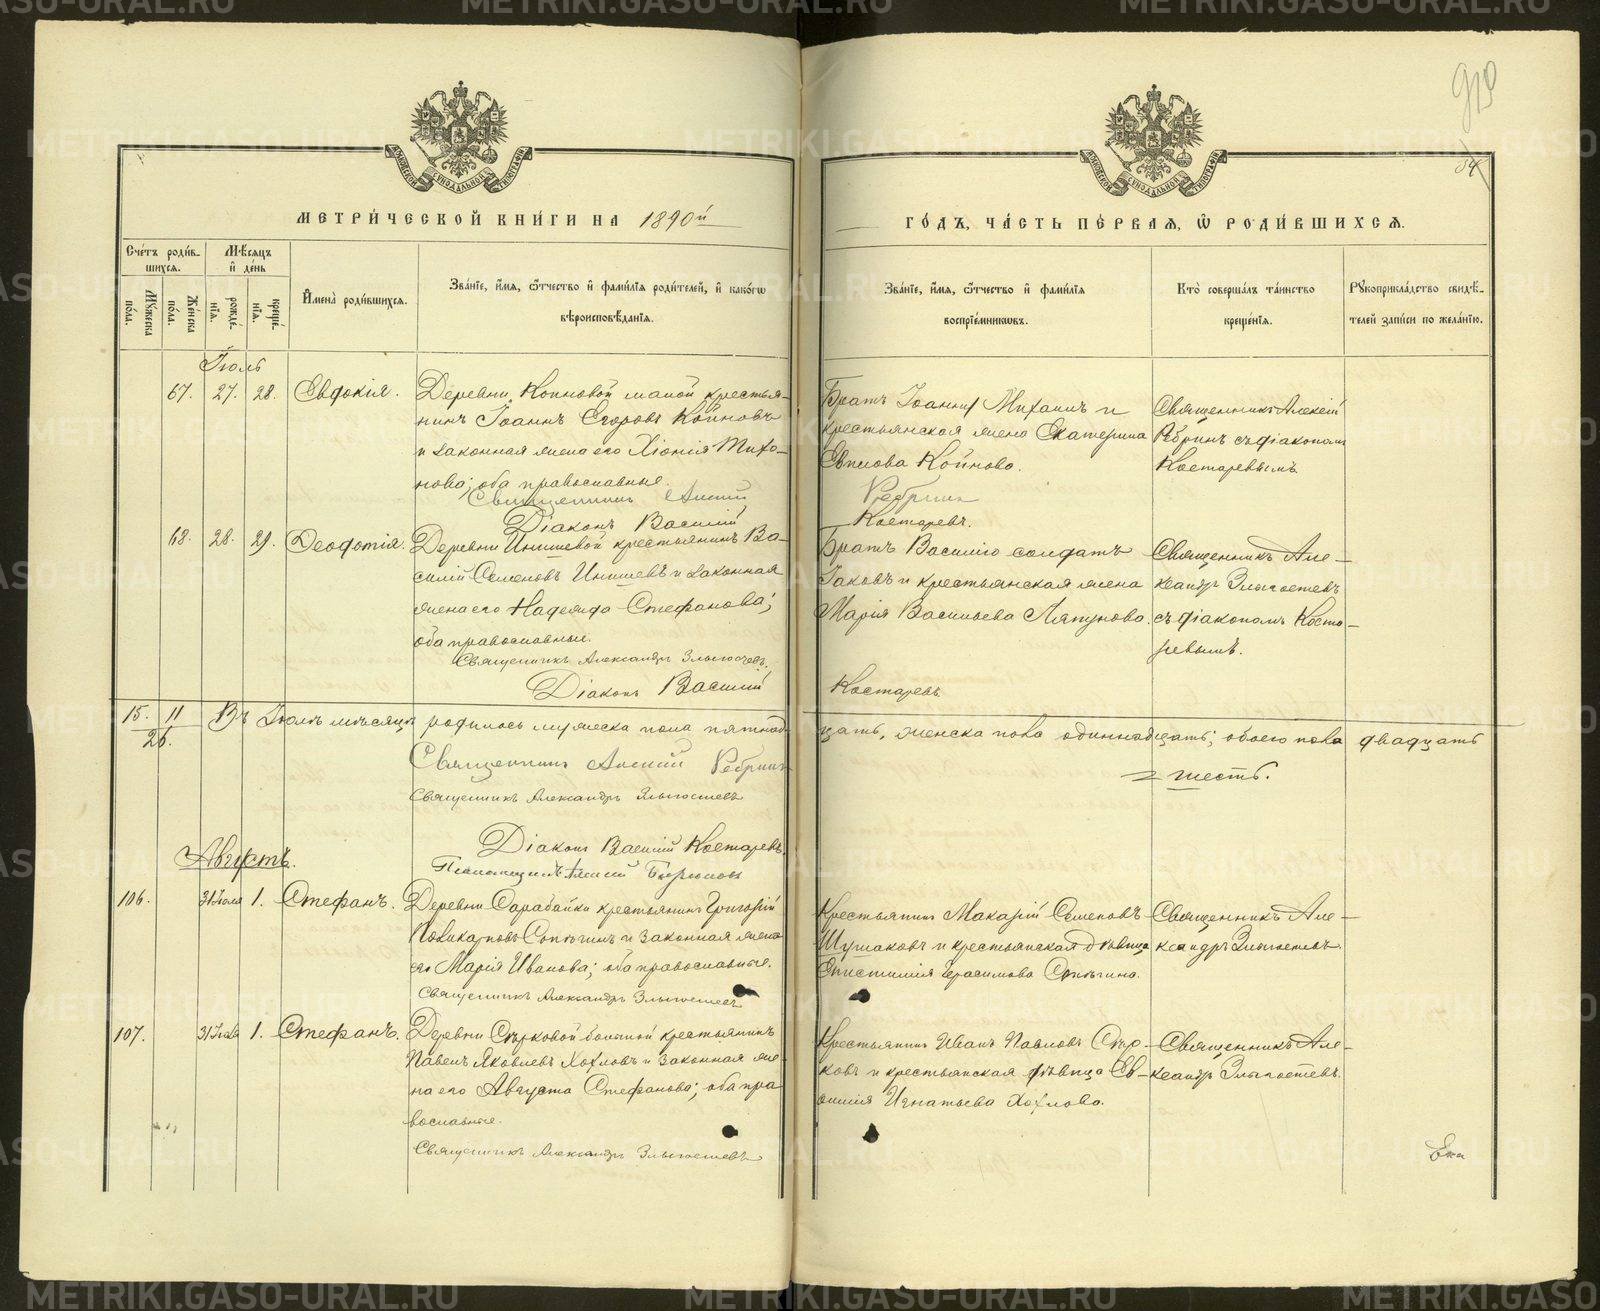 METRIKI.GASO-URAL.RU
919
34
МОСКОВСКОЙ СѴНОДАЛЬНОЙ ТИПОГРАФІИ
МОСКОВСКОЙ СѴНОДАЛЬНОЙ ТИПОГРАФІИ
МЕТРИ́ЧЕСКОЙ КНИ́ГИ НА 1890й
ГО́ДЪ, ЧА́СТЬ ПЕ́РВАЯ, Ѿ РОДИ́ВШИХСЯ.
Сче́тъ роди́вшихся.
Му́жеска по́ла.
Же́нска по́ла.
Мѣ́сяцъ и҆ де́нь
рожде́нїѧ.
креще́нїѧ.
И҆мена̀ роди́вшихсѧ.
Зва́нїе, и҆́мѧ, ѻ҆́тчество и҆ фами́лїѧ роди́телей, и҆ како́гѡ
вѣроисповѣ́данїѧ.
Зва́нїе, и҆́мѧ, ѻ҆́тчество и҆ фами́лїѧ
воспрїе́мникѡвъ.
Кто̀ соверша́лъ та́инство
креще́нїѧ.
Рꙋкоприкла́дство свидѣ́-
телей за́писи по жела́нїю.
Іюль
67. 27. 28. Евдокія.
Деревни Коиновой малой крестья-
нинъ Іоаннъ Егоровъ Коиновъ
и законная жена его Хіонія Тихо-
нова; оба православные.
Священникъ Алексій Ребринъ
Діаконъ Василій Костаревъ.
Братъ Іоанну Михаилъ и
крестьянская жена Екатерина
Коинова.
Священникъ Алексій
Ребринъ съ діакономъ
Костаревымъ
68. 28. 29. Ѳеодотія.
Деревни Инишевой крестьянинъ Ва-
силій Семеновъ Инишевъ и законная
жена его Надежда Стефанова;
оба православные.
Священникъ Александръ Злыгостевъ.
Діаконъ Василій Костаревъ
Братъ Василію солдатъ
Іаковъ и крестьянская жена
Марія Васильева Ляпунова.
Священникъ Але-
ксандръ Злыгостевъ
съ діакономъ Коста-
ревымъ.
15. 11
26.
Въ Іюлѣ мѣсяцѣ родилось мужеска пола пятнад-
цать, женска пола одиннадцать; обоего пола двадцать
шесть.
Священникъ Алексій Ребринъ
Священникъ Александръ Злыгостевъ
Діаконъ Василій Костаревъ.
Псаломщикъ Алексій Бирюковъ
Августъ.
106. 31 Іюля 1. Стефанъ.
Деревни Сарабайки крестьянинъ Григорій
Поликарповъ Сопыгинъ и законная жена
его Марія Иванова; оба православные.
Священникъ Александръ Злыгостевъ
Крестьянинъ Макарій Семеновъ
Шушаковъ и крестьянская дѣвица
Епистимія Герасимова
Священникъ Але-
ксандръ Злыгостевъ.
107. 31 Іюля 1. Стефанъ.
Деревни Сѣрковой большой крестьянинъ
Павелъ Яковлевъ Хохловъ и законная же-
на его Августа Стефанова; оба пра-
вославные.
Священникъ Александръ Злыгостевъ
Крестьянинъ Иванъ Павловъ Сѣр-
ковъ и крестьянская дѣвица Ев-
Игнатьева Хохлова.
Священникъ Але-
ксандръ Злыгостевъ.